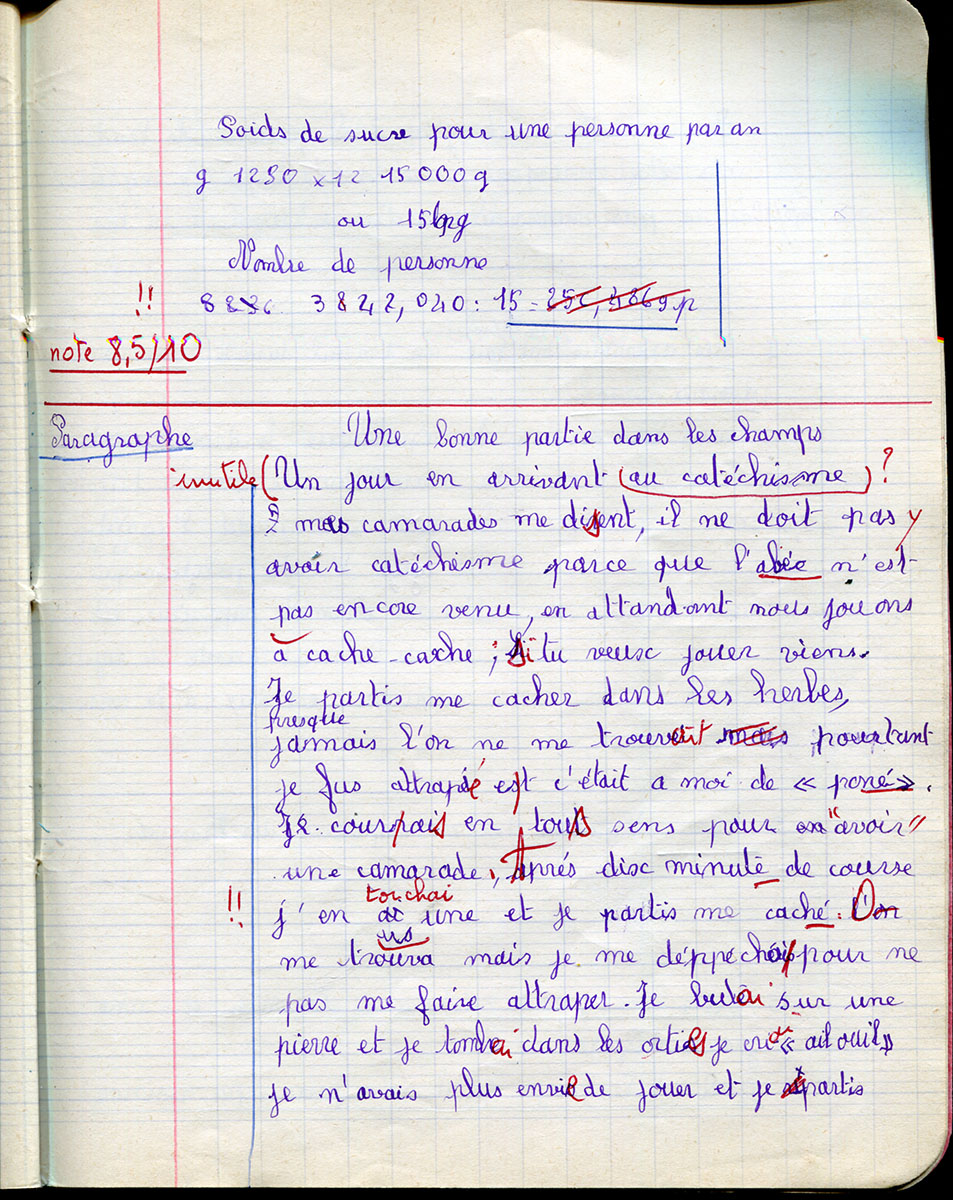 Poids de sucre pour une personne par an
g 1250 x 12 15 000 g
ou 15 kg
Nombre de personne
!! 3 842,040 : 15 = p
note 8,5/10
Paragraphe Une bonne partie dans les champs
inutile (Un jour en arrivant (au catéchisme) ?
mes camarades me disent, il ne doit pas y
avoir catéchisme parce que l'abée n'est
pas encore venu, en attandant nous jouons
à cache-cache ; si tu veux jouer viens.
Je partis me cacher dans les herbes,
presque
jamais l'on ne me trouvait mais pourtant
je fus attrapé et c'était a moi de « poné ».
Je courrais en tous sens pour "avoir"
une camarade, Après disc minute de course
touchai
!! j'en une et je partis me caché. On
me trouva mais je me déppéchai pour ne
pas me faire attraper. Je butai sur une
pierre et je tombai dans les orties je criai « ail ouil »
je n'avais plus envie de jouer et je partis